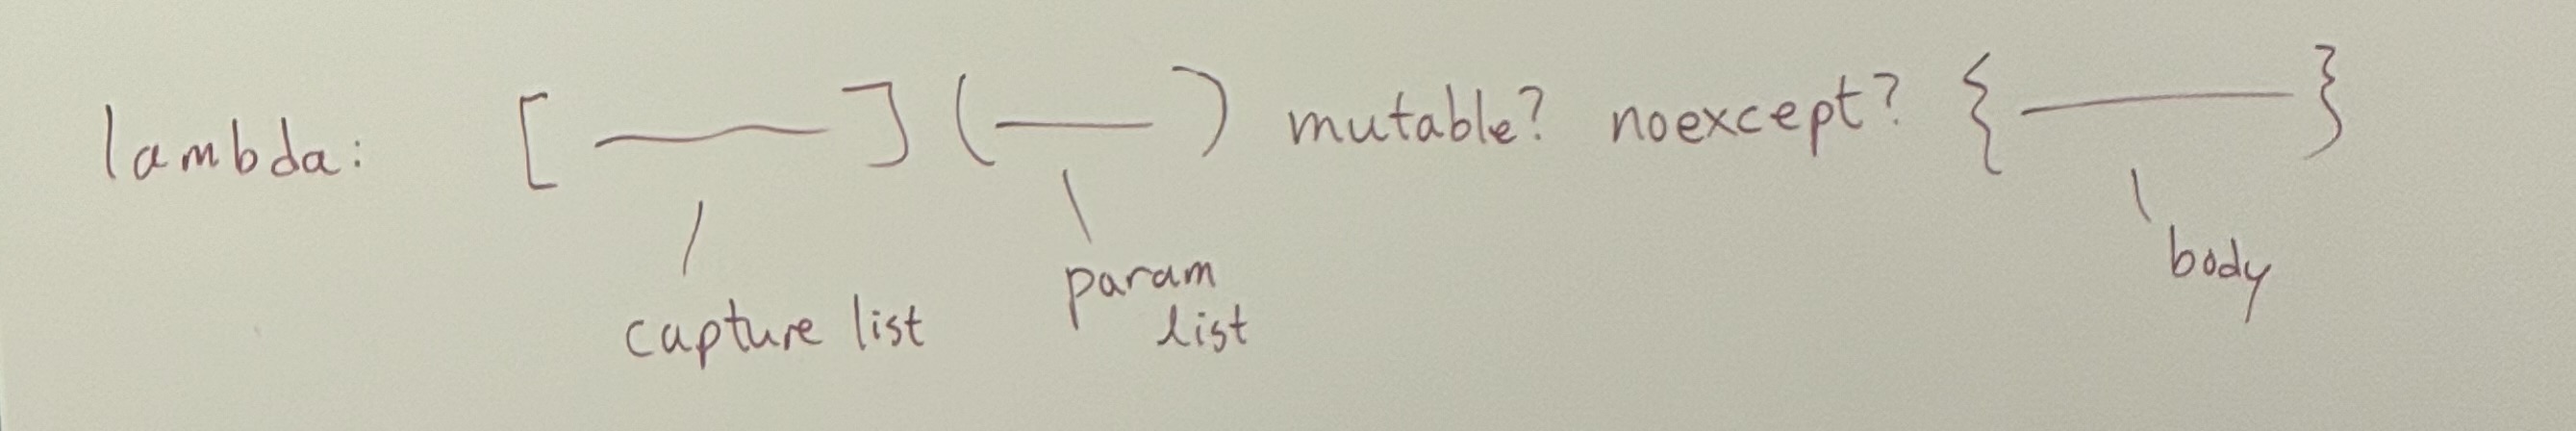 lambda: [ ] ( ) mutable? noexcept? { }
capture list
param
list
body